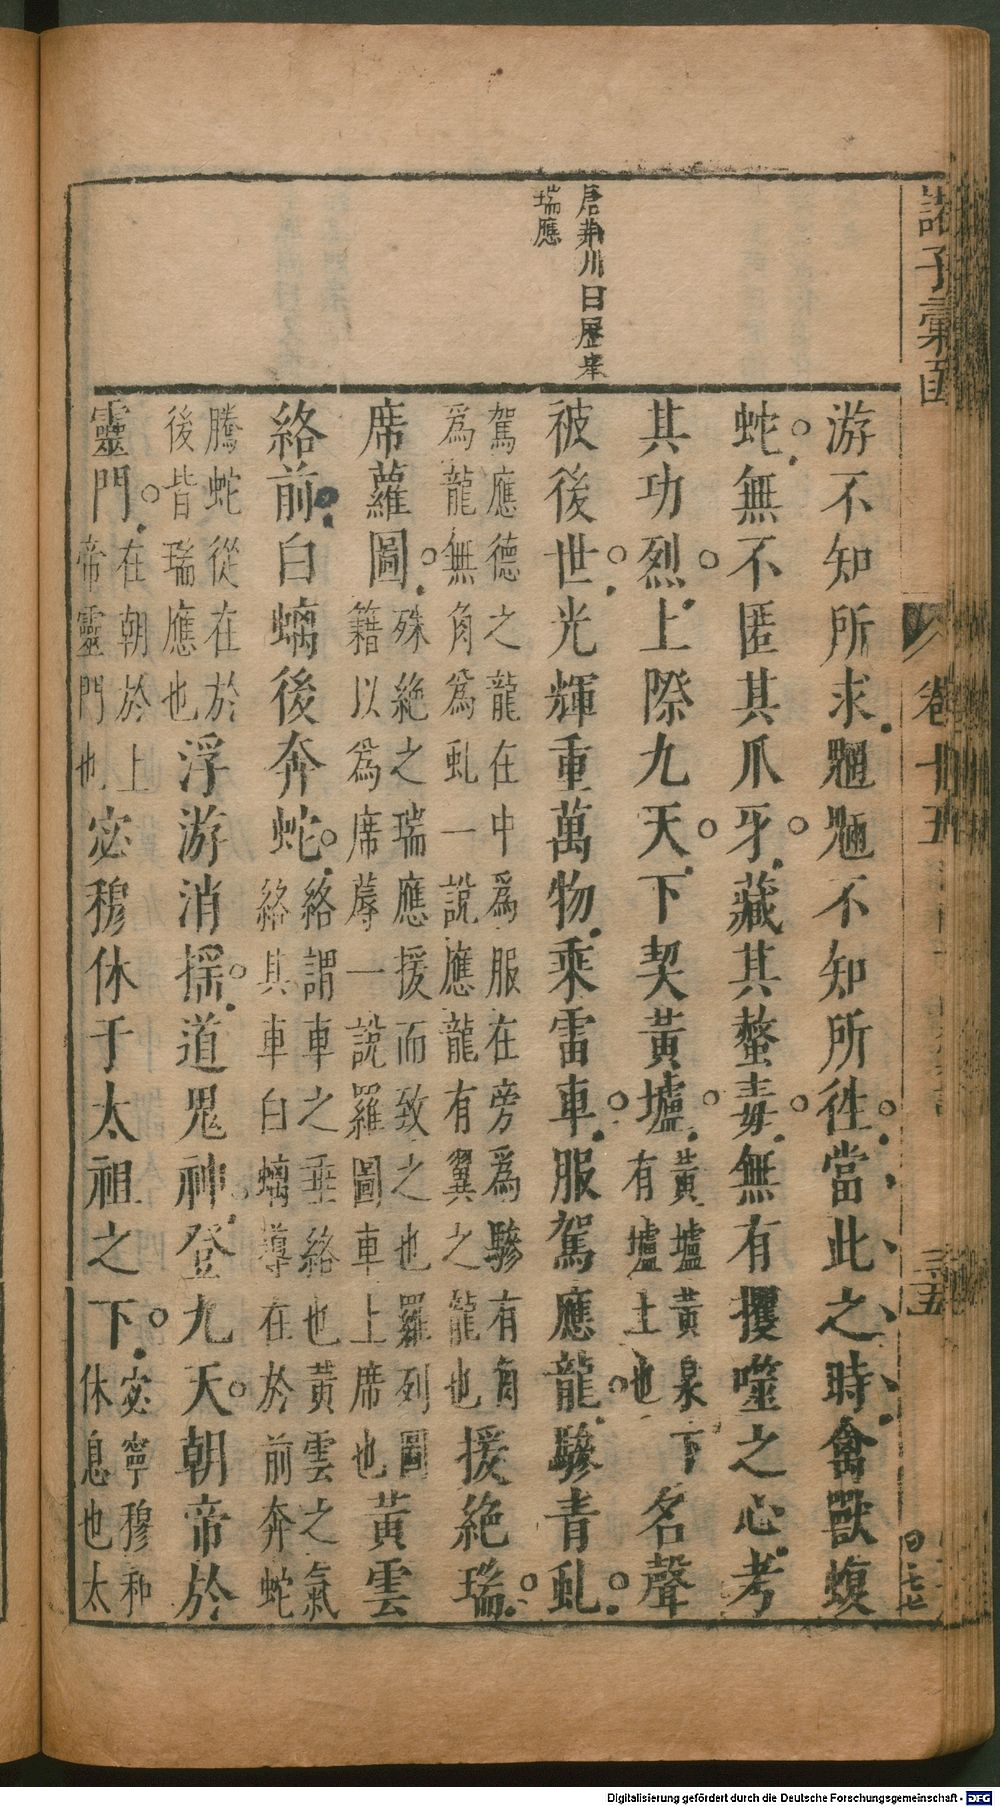 諸子彙函
卷十五
三五
唐荊川曰歷舉
瑞應
游不知所求魍魎不知所往當此之時禽獸蝮
蛇無不匿其爪牙藏其螫毒無有攫噬之心考
其功烈上際九天下契黃壚黃壚黃泉下有壚土也名聲
被後世光輝重萬物乘雷車服駕應龍驂青虬
駕應德之龍在中為服在旁為驂有角為龍無角為虬一說應龍有翼之龍也援絕瑞
席蘿圖殊絕之瑞應援而致之也羅列圖籍以為席蓐一說羅圖車上席也黃雲
絡前白螭後奔蛇絡謂車之垂絡也黃雲之氣絡其車白螭導在於前奔蛇
騰蛇從在於後皆瑞應也浮游消搖道鬼神登九天朝帝於
靈門在朝於上帝靈門也宓穆休于太祖之下宓寧穆和休息也太
Digitalisierung gefördert durch die Deutsche Forschungsgemeinschaft - DFG